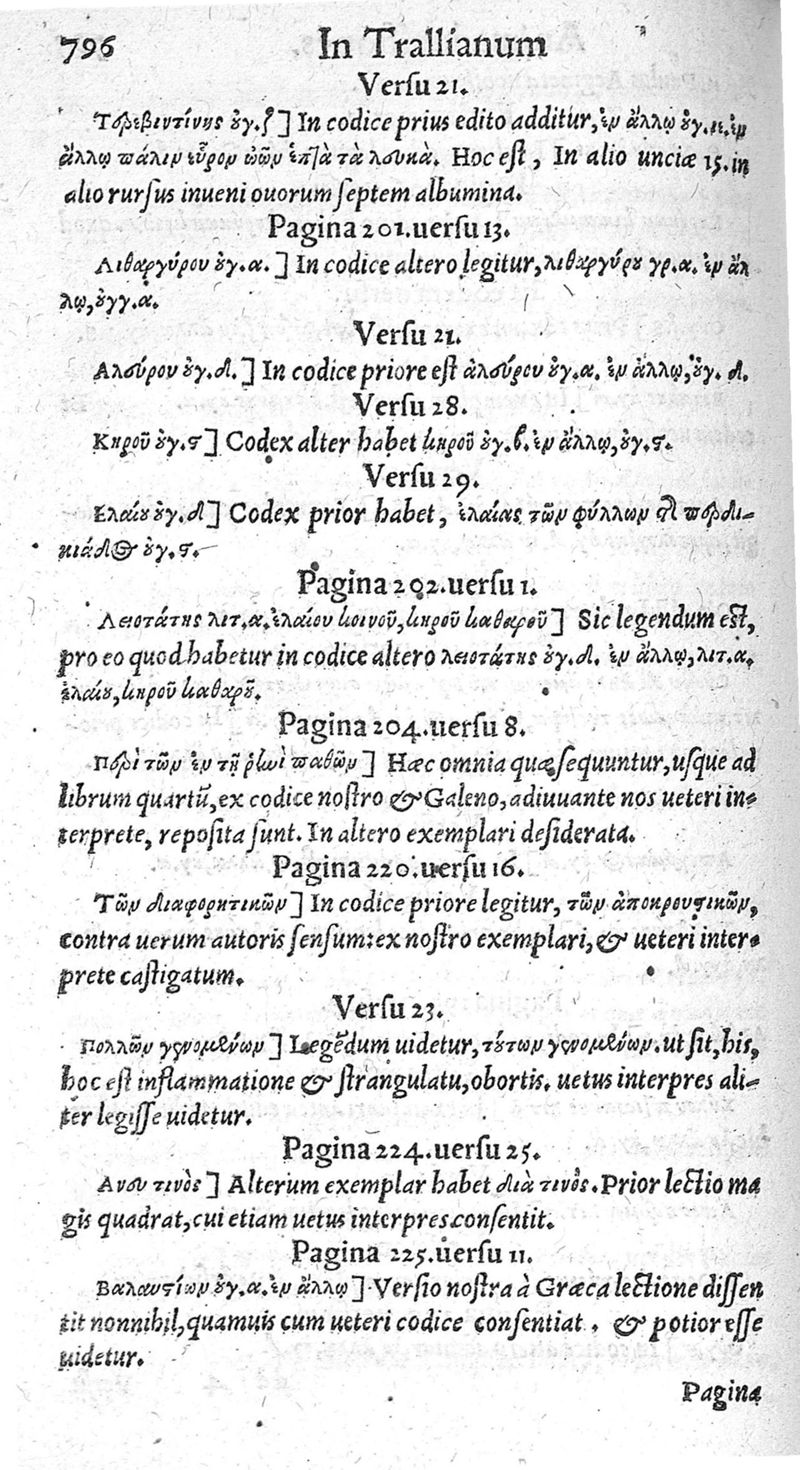 796 In Trallianum
Versu 21.
Τερεβιντίνης ȣγ.ζ] In codice prius edito additur, ἐν ἄλλῳ ȣγ.ιε. ἐν
ἄλλῳ πάλιν εὗρον ὠῶν ἑπτὰ τὰ λευκὰ. Hoc est, In alio unciæ 15. in
alio rursus inueni ouorum septem albumina.
Pagina 201. uersu 13.
Λιθαργύρου ȣγ.α.] In codice altero legitur, λιθαργύρȣ γρ.α. ἐν ἄλ
λῳ, ȣγγ.α.
Versu 21.
Αλεύρου ȣγ.δ.] In codice priore est ἀλεύρου ȣγ.α. ἐν ἄλλῳ, ȣγ. δ.
Versu 28.
Κηροῦ ȣγ.ϛ] Codex alter habet κηροῦ ȣγ.β. ἐν ἄλλῳ, ȣγ.ϛ.
Versu 29.
Ελαίȣ ȣγ.δ] Codex prior habet, ἐλαίας τῶν φύλλων ἢ περδι-
κιάδος ȣγ.ϛ.
Pagina 202. uersu 1.
Λειοτάτης λιτ.α. ἐλαίου κοινοῦ, κηροῦ καθαροῦ] Sic legendum est,
pro eo quod habetur in codice altero λειοτάτης ȣγ.δ. ἐν ἄλλῳ, λιτ.α.
ἐλαίȣ, κηροῦ καθαρȣ͂.
Pagina 204. uersu 8.
Περὶ τῶν ἐν τῇ ῥινὶ παθῶν] Hæc omnia quæ sequuntur, usque ad
librum quartũ, ex codice nostro & Galeno, adiuuante nos ueteri in-
terprete, reposita sunt. In altero exemplari desiderata.
Pagina 220. uersu 16.
Τῶν διαφορητικῶν] In codice priore legitur, τῶν ἀποκρουστικῶν,
contra uerum autoris sensum: ex nostro exemplari, & ueteri inter-
prete castigatum.
Versu 23.
Πολλῶν γινομένων] Legẽdum uidetur, τȣ́των γινομένων. ut sit, his,
hoc est inflammatione & strangulatu, obortis. uetus interpres ali-
ter legisse uidetur.
Pagina 224. uersu 25.
Ανευ τινὸς] Alterum exemplar habet διὰ τινός. Prior lectio ma
gis quadrat, cui etiam uetus interpres consentit.
Pagina 225. uersu 11.
Βαλαυστίων ȣγ.α. ἐν ἄλλῳ] Versio nostra à Græca lectione dissen
tit nonnihil, quamuis cum ueteri codice consentiat. & potior esse
uidetur.
Pagina